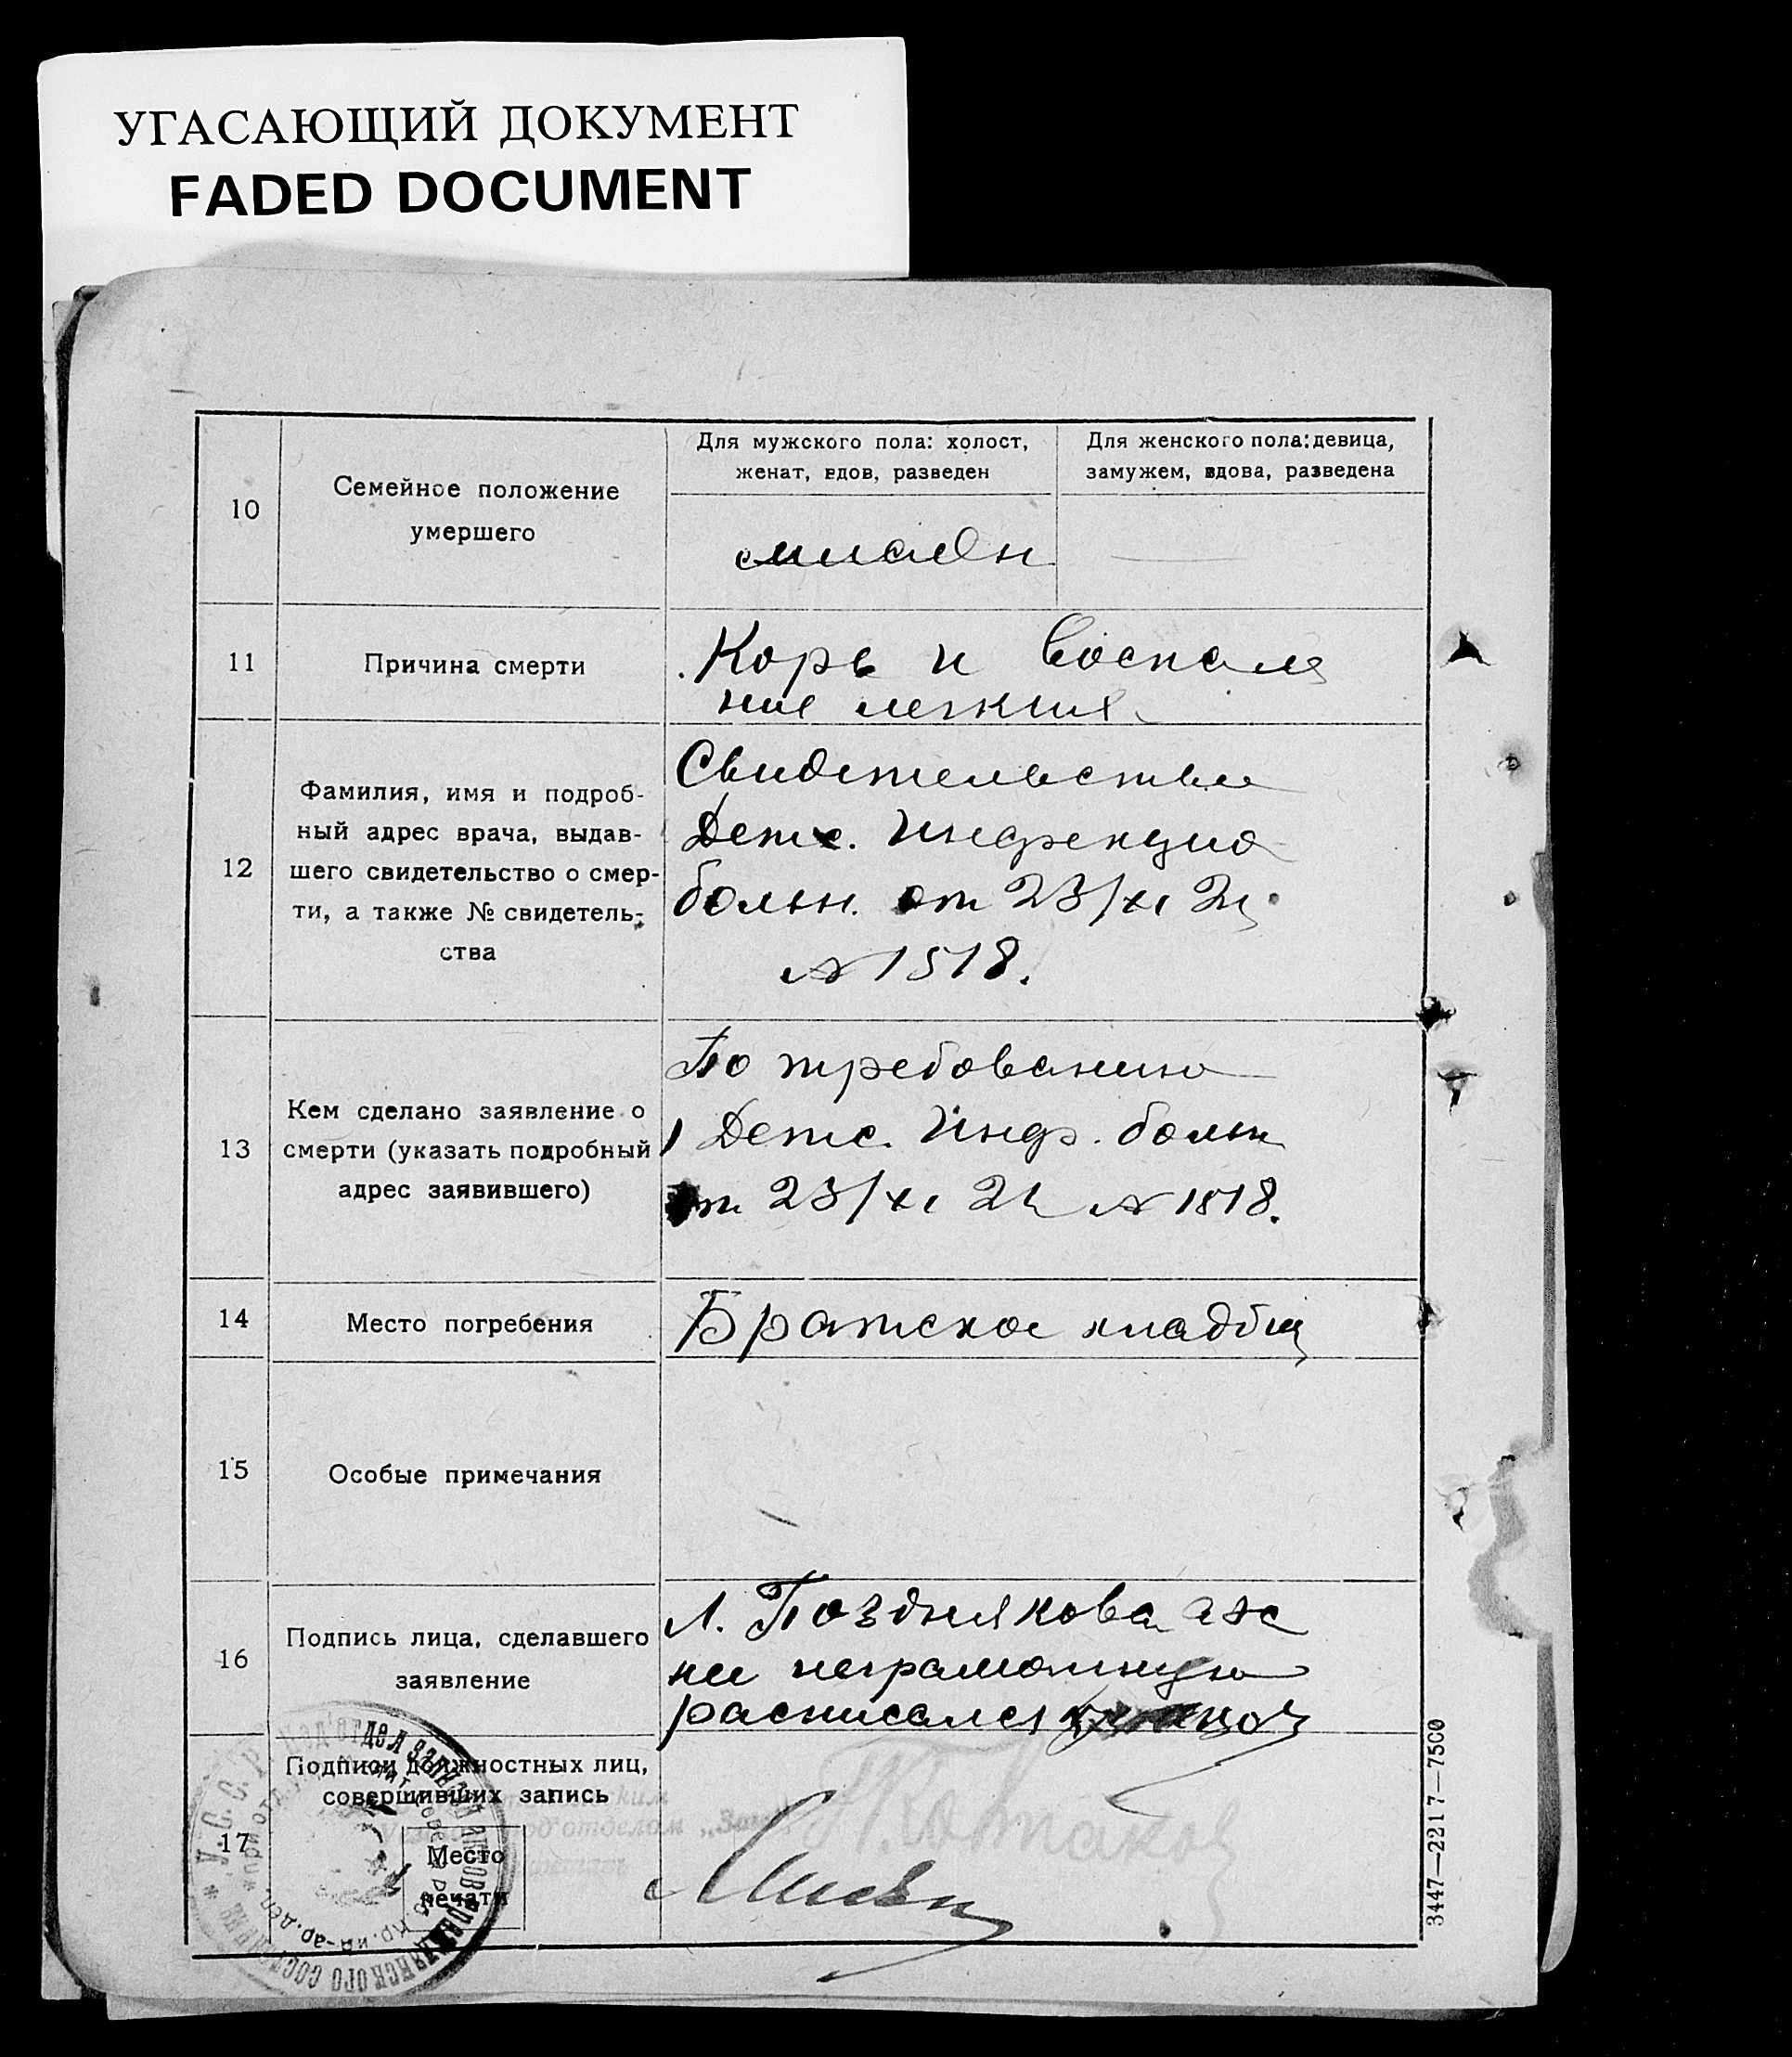 УГАСАЮЩИЙ ДОКУМЕНТ
FADED DOCUMENT
10
Семейное положение
умершего
Для мужского пола: холост,
женат, вдов, разведен
Для женского пола: девица,
замужем, вдова, разведена
11
Причина смерти
Корь и воспале
ние легких
12
Фамилия, имя и подроб-
ный адрес врача, выдав-
шего свидетельство о смер-
ти, а также № свидетель-
ства
Свидетельство
Детс. Инфекцио
больн. от 23/XI 2
№ 1518.
13
Кем сделано заявление о
смерти (указать подробный
адрес заявившего)
По требованию
Детс. Инф. больн
от 23/XI 2 № 1518.
14
Место погребения
Братское кладбищ
15
Особые примечания
16
Подпись лица, сделавшего
заявление
Л. Позднякова а за
нее неграмотную
расписался
17
Подписи должностных лиц,
совершивших запись
Место
печати
3447—2217—7500